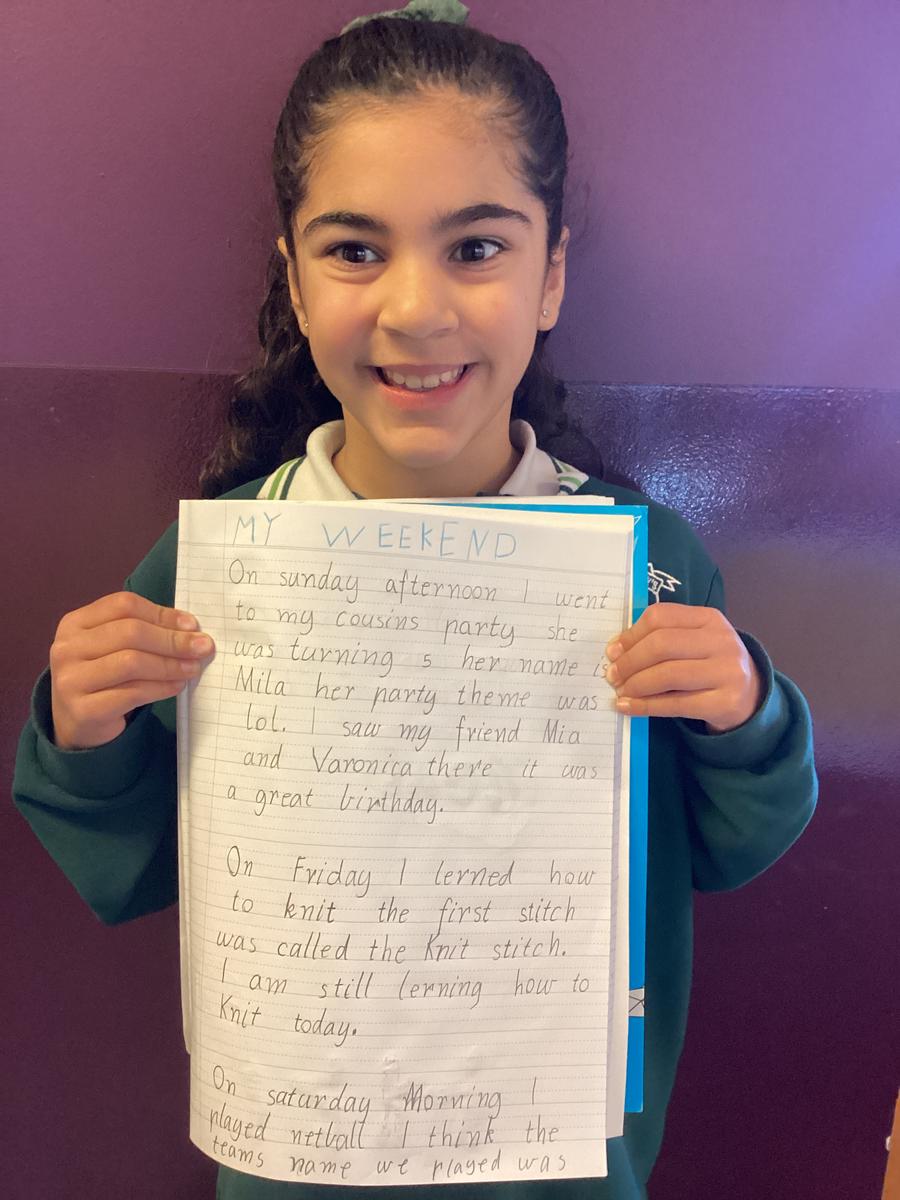 MY WEEKEND
On sunday afternoon I went
to my cousins party she
was turning 5 her name is
Mila her party theme was
lol. I saw my friend Mia
and Varonica there it was
a great birthday.
On Friday I lerned how
to knit the first stitch
was called the Knit stitch.
I am still lerning how to
Knit today.
On saturday Morning I
played netball I think the
teams name we played was